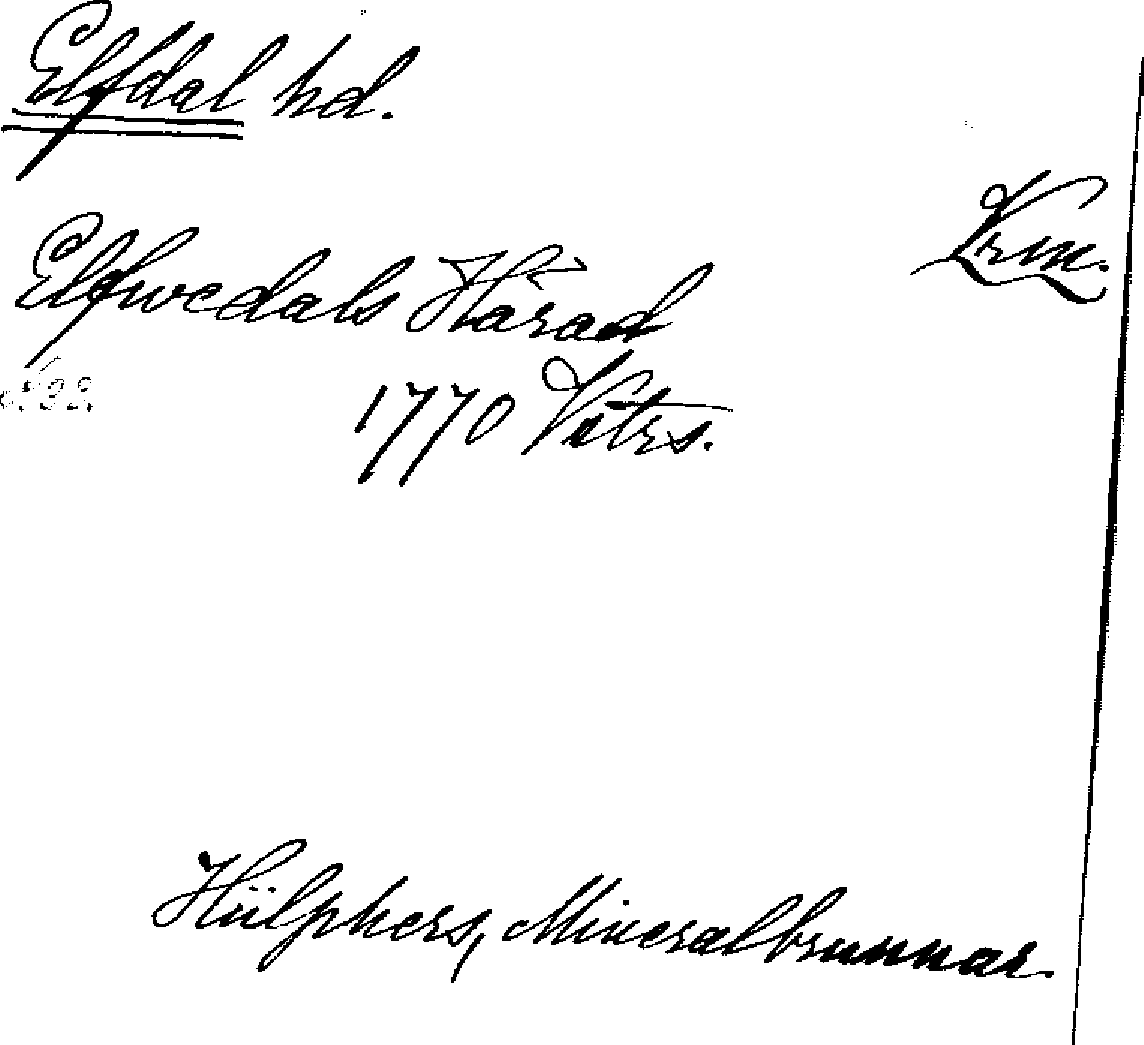 Elfdal hd.
Vrm.
Elfwedals Härad
1770 Vetrs.
Hülphers, Mineralbrunnar.